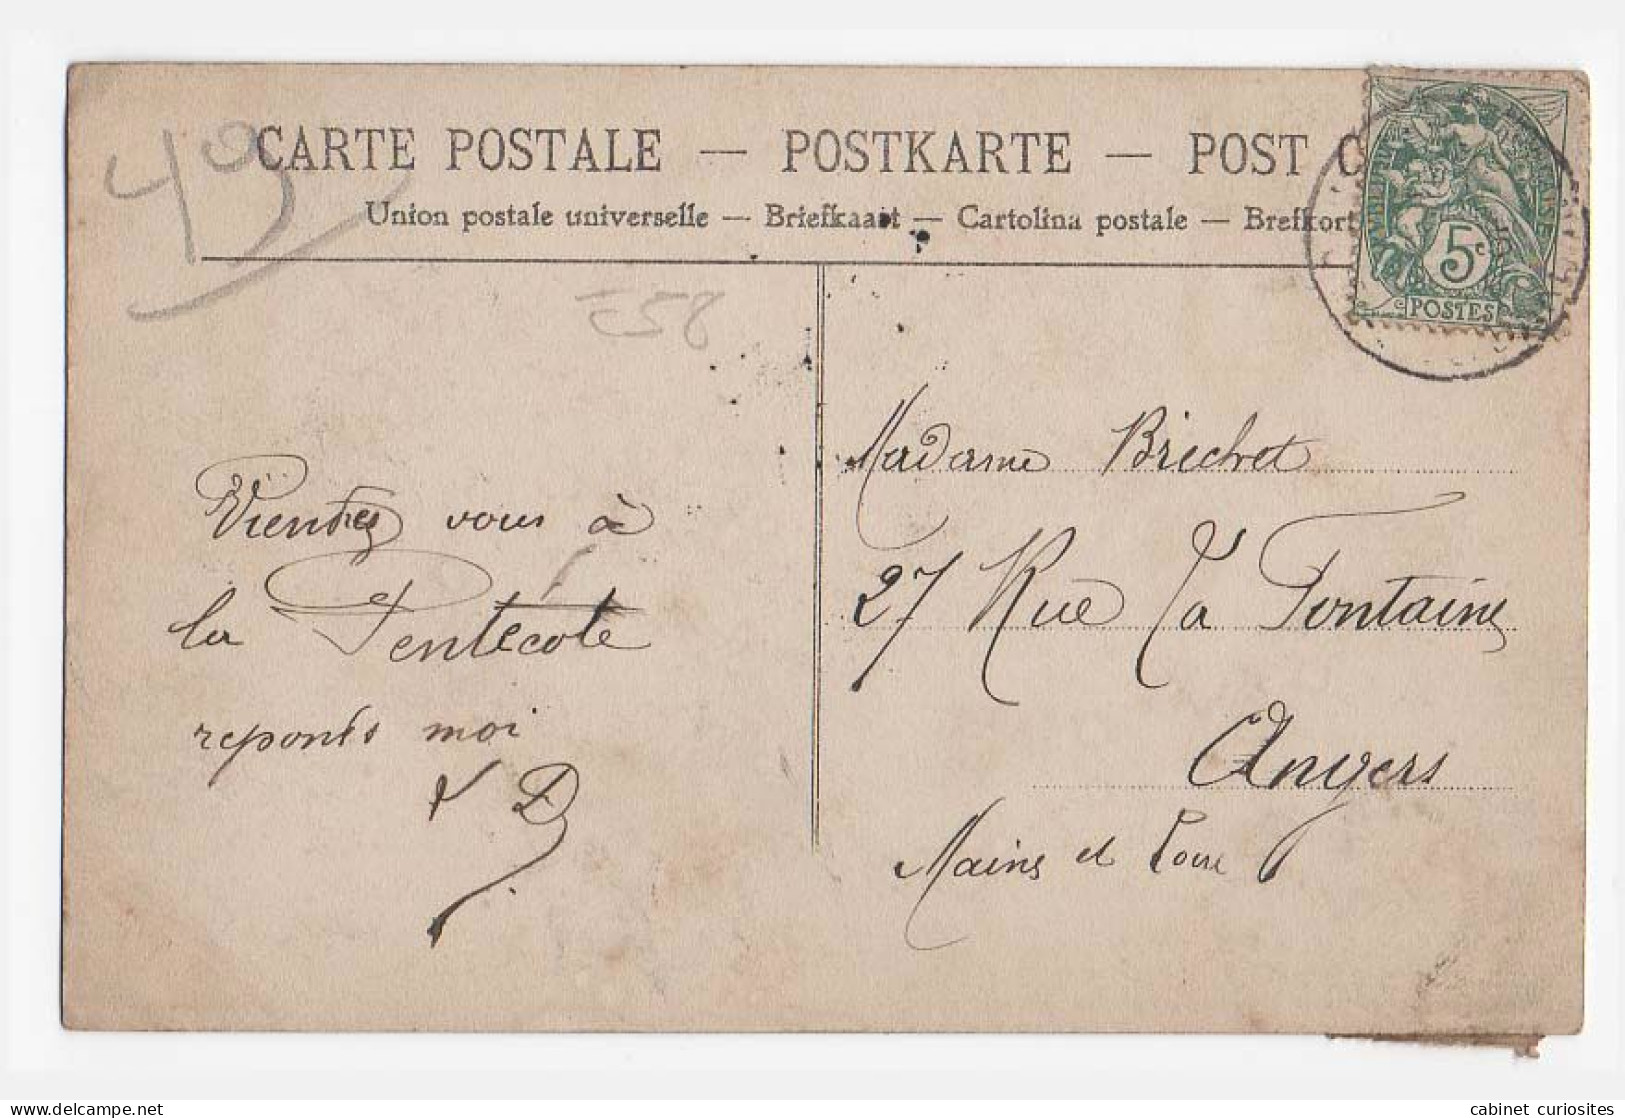 49
CARTE POSTALE — POSTKARTE — POST C
Union postale universelle — Briefkaart — Cartolina postale — Brefkort
E58
5c
POSTES
Viendrez vous à
la Pentecôte
reponds moi
V D
Madame Brichet
27 Rue La Fontaine
Angers
Maine et Loire
cabinet curiosites